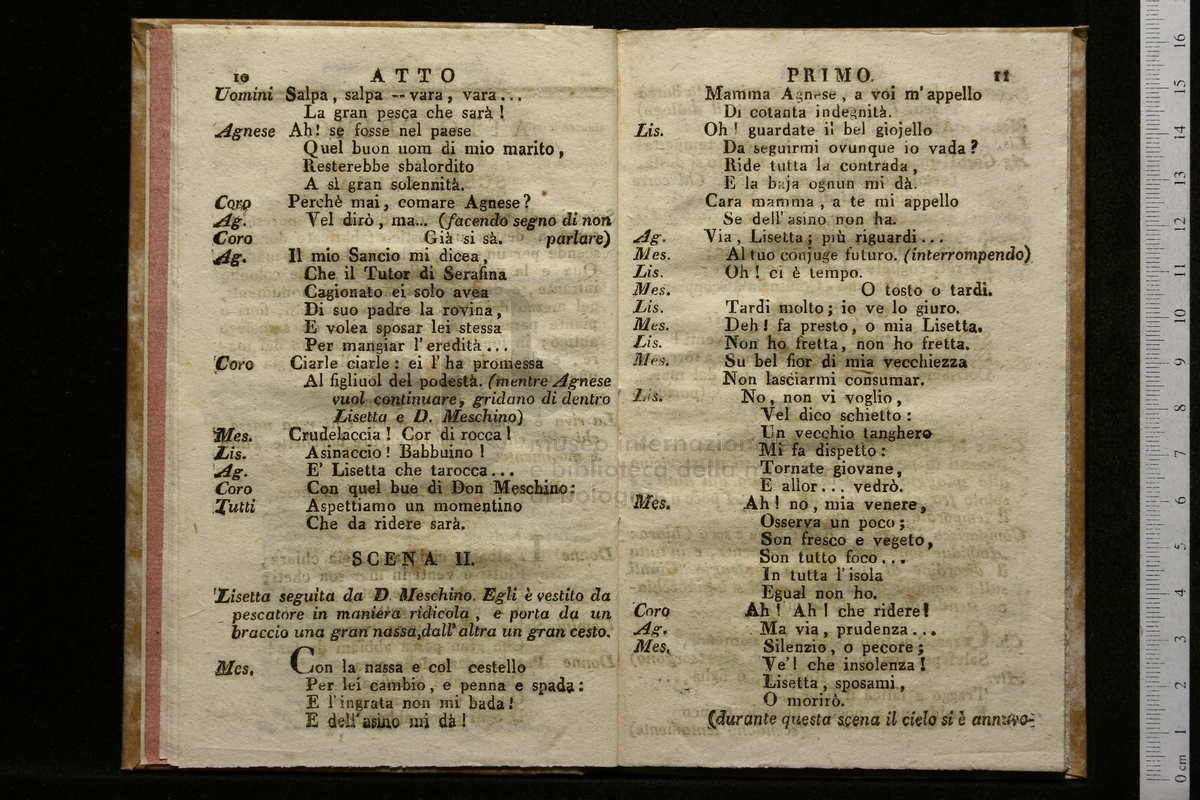 10 ATTO
Uomini Salpa, salpa -- vara, vara...
La gran pesca che sarà!
Agnese Ah! se fosse nel paese
Quel buon uom di mio marito,
Resterebbe sbalordito
A sì gran solennità.
Coro Perchè mai, comare Agnese?
Ag. Vel dirò, ma... (facendo segno di non
Coro Già si sà. parlare)
Ag. Il mio Sancio mi dicea,
Che il Tutor di Serafina
Cagionato ei solo avea
Di suo padre la rovina,
E volea sposar lei stessa
Per mangiar l'eredità...
Coro Ciarle ciarle: ei l'ha promessa
Al figliuol del podestà. (mentre Agnese
vuol continuare, gridano di dentro
Lisetta e D. Meschino)
Mes. Crudelaccia! Cor di rocca!
Lis. Asinaccio! Babbuino!
Ag. E' Lisetta che tarocca...
Coro Con quel bue di Don Meschino:
Tutti Aspettiamo un momentino
Che da ridere sarà.
SCENA II.
Lisetta seguita da D. Meschino. Egli è vestito da
pescatore in maniera ridicola, e porta da un
braccio una gran nassa, dall' altra un gran cesto.
Mes. Con la nassa e col cestello
Per lei cambio, e penna e spada:
E l'ingrata non mi bada!
E dell'asino mi dà!
PRIMO. 11
Mamma Agnese, a voi m'appello
Di cotanta indegnità.
Lis. Oh! guardate il bel giojello
Da seguirmi ovunque io vada?
Ride tutta la contrada,
E la baja ognun mi dà.
Cara mamma, a te mi appello
Se dell'asino non ha.
Ag. Via, Lisetta; più riguardi...
Mes. Al tuo conjuge futuro. (interrompendo)
Lis. Oh! ci è tempo.
Mes. O tosto o tardi.
Lis. Tardi molto; io ve lo giuro.
Mes. Deh! fa presto, o mia Lisetta.
Lis. Non ho fretta, non ho fretta.
Mes. Su bel fior di mia vecchiezza
Non lasciarmi consumar.
Lis. No, non vi voglio,
Vel dico schietto:
Un vecchio tanghero
Mi fa dispetto:
Tornate giovane,
E allor... vedrò.
Mes. Ah! no, mia venere,
Osserva un poco;
Son fresco e vegeto,
Son tutto foco...
In tutta l'isola
Egual non ho.
Coro Ah! Ah! che ridere!
Ag. Ma via, prudenza...
Mes. Silenzio, o pecore;
Ve'! che insolenza!
Lisetta, sposami,
O morirò.
(durante questa scena il cielo si è annuvo-
museo internazionale
e biblioteca della
bologna
0 cm 1 2 3 4 5 6 7 8 9 10 11 12 13 14 15 16